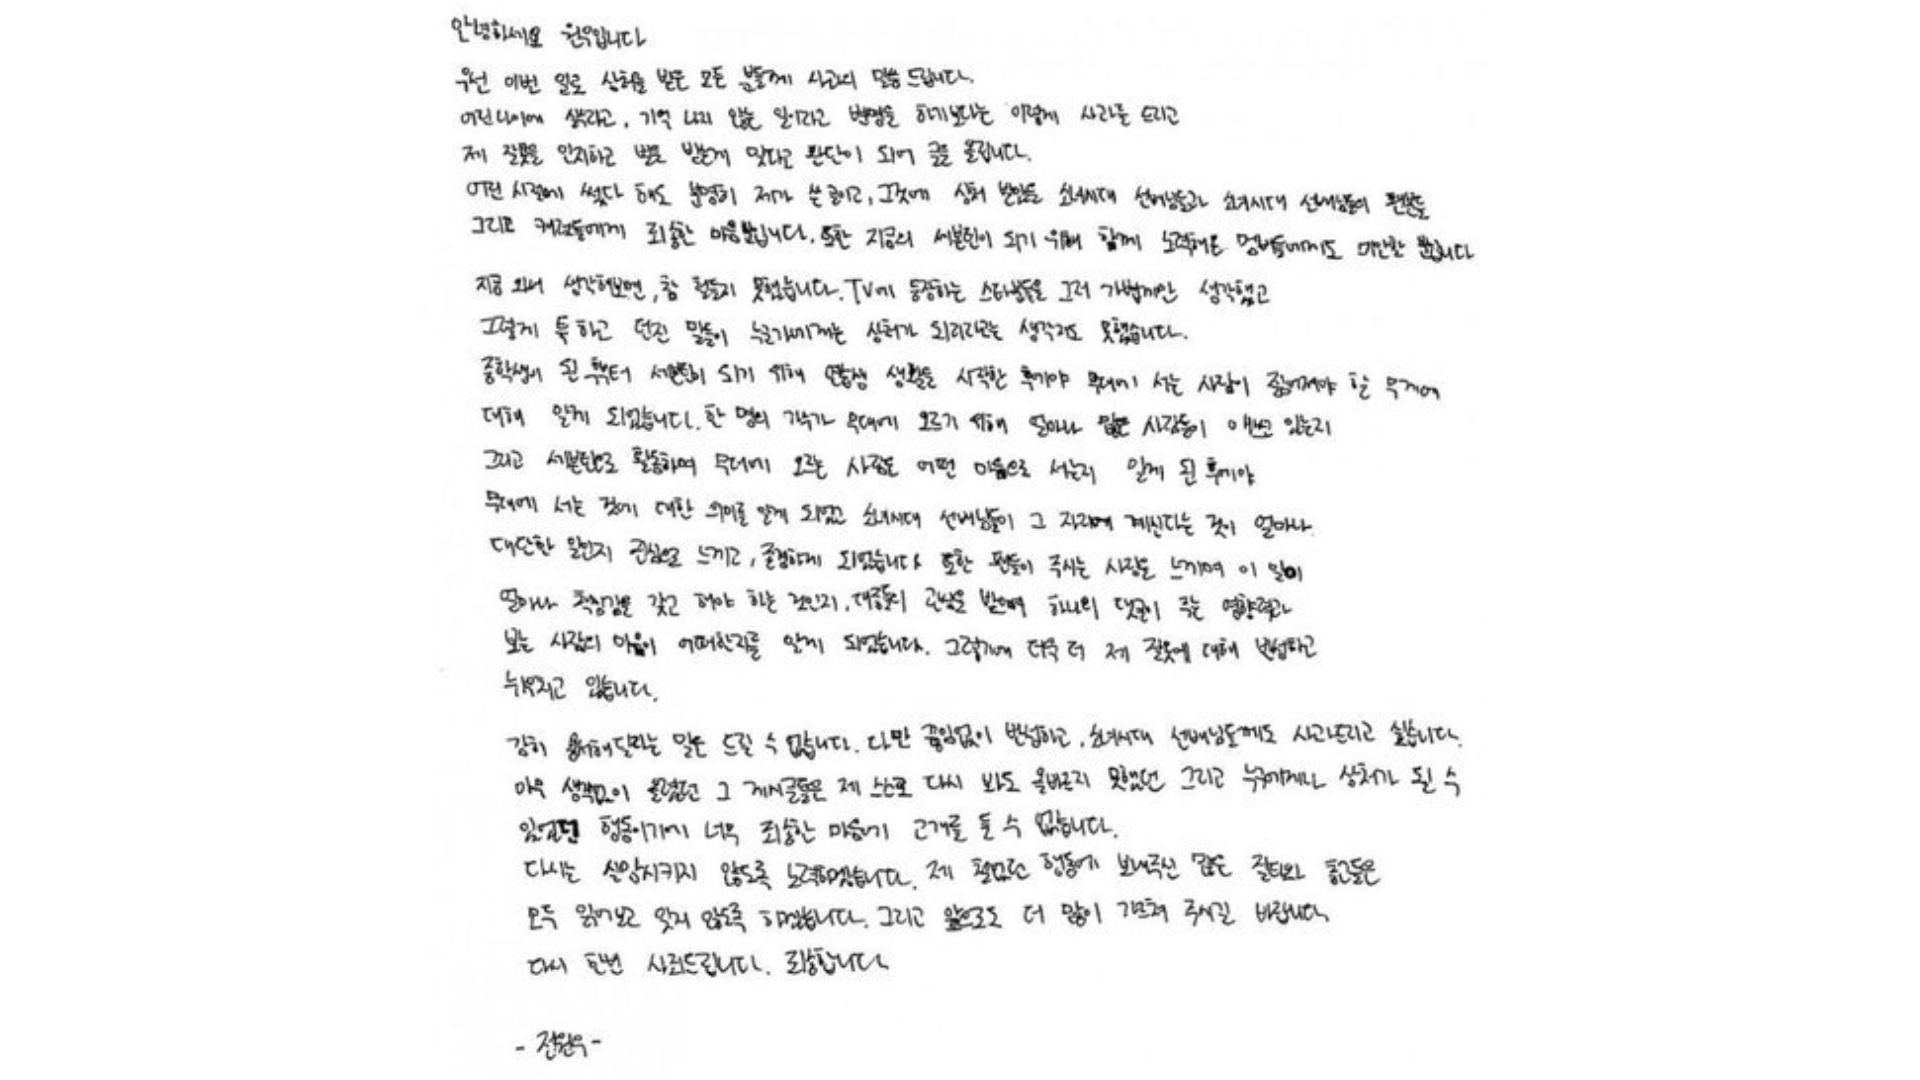 안녕하세요 원우입니다
우선 이번 일로 상처를 받은 모든 분들께 사과의 말씀 드립니다.
어린나이에 썼다고, 기억 나지 않는 일이라고 변명을 하기보다는 이렇게 사과를 드리고
제 잘못을 인지하고 벌을 받는게 맞다고 판단이 되어 글을 올립니다.
어린 시절에 썼다 해도 분명히 제가 쓴 글이고, 그것에 상처 받았을 소녀시대 선배님들과 소녀시대 선배님들의 팬분들
그리고 캐럿들에게 죄송한 마음뿐입니다. 또한 지금의 세븐틴이 되기 위해 함께 노력해온 멤버들에게도 미안할 뿐입니다
지금 와서 생각해보면, 참 철들지 못했습니다. TV에 등장하는 스타분들을 그저 가볍게만 생각했고
그렇게 툭 하고 던진 말들이 누군가에게는 상처가 되리라고는 생각지도 못했습니다.
중학생이 된 후부터 세븐틴이 되기 위해 연습생 생활을 시작한 후에야 무대에 서는 사람이 짊어져야 할 무게에
대해 알게 되었습니다. 한 명의 가수가 무대에 오르기 위해 얼마나 많은 사람들이 애쓰고 있는지
그리고 세븐틴으로 활동하며 무대에 오르는 사람은 어떤 마음으로 서는지 알게 된 후에야
무대에 서는 것에 대한 의미를 알게 되었고 소녀시대 선배님들이 그 자리에 계신다는 것이 얼마나
대단한 일인지 진심으로 느끼고, 존경하게 되었습니다 또한 팬들이 주시는 사랑을 느끼며 이 일이
얼마나 책임감을 갖고 해야 하는 것인지, 대중들의 관심을 받으며 하나의 댓글이 주는 영향력과
보는 사람의 마음이 어떠한지를 알게 되었습니다. 그렇기에 더욱 더 제 잘못에 대해 반성하고
뉘우치고 있습니다.
감히 용서해달라는 말은 드릴 수 없습니다. 다만 끊임없이 반성하고, 소녀시대 선배님들께도 사과드리고 싶습니다.
아무 생각없이 올렸던 그 게시글들은 제 스스로 다시 봐도 올바르지 못했던 그리고 누구에게나 상처가 될 수
있었던 행동이기에 너무 죄송한 마음에 고개를 들 수 없습니다.
다시는 실망시키지 않도록 노력하겠습니다. 제 철없던 행동에 보내주신 많은 질타와 충고들은
모두 읽어보고 잊지 않도록 하겠습니다. 그리고 앞으로도 더 많이 가르쳐 주시길 바랍니다.
다시 한번 사죄드립니다. 죄송합니다.
- 전원우 -